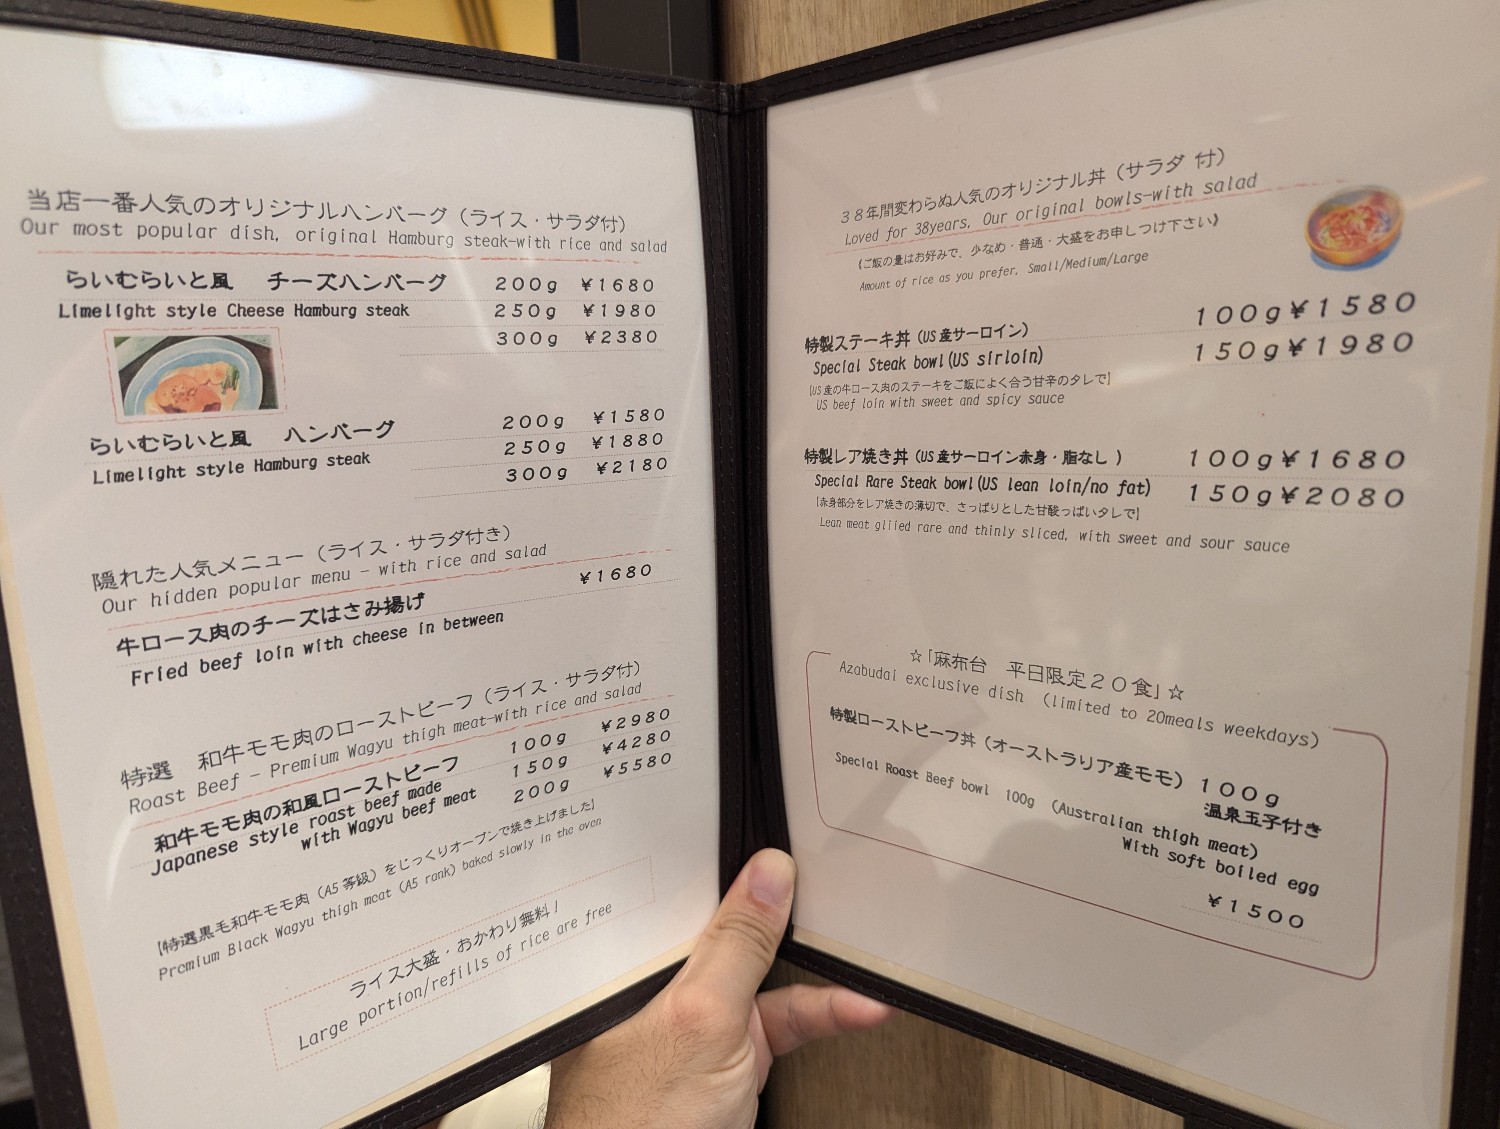 当店一番人気のオリジナルハンバーグ（ライス・サラダ付）
Our most popular dish, original Hamburg steak-with rice and salad
らいむらいと風 チーズハンバーグ 200g ¥1680
Limelight style Cheese Hamburg steak 250g ¥1980
300g ¥2380
らいむらいと風 ハンバーグ 200g ¥1580
Limelight style Hamburg steak 250g ¥1880
300g ¥2180
隠れた人気メニュー（ライス・サラダ付き）
Our hidden popular menu - with rice and salad
¥1680
牛ロース肉のチーズはさみ揚げ
Fried beef loin with cheese in between
特選 和牛モモ肉のローストビーフ（ライス・サラダ付）
Roast Beef - Premium Wagyu thigh meat-with rice and salad
和牛モモ肉の和風ローストビーフ 100g ¥2980
Japanese style roast beef made 150g ¥4280
with Wagyu beef meat 200g ¥5580
[特選黒毛和牛モモ肉（A5等級）をじっくりオーブンで焼き上げました]
Premium Black Wagyu thigh meat (A5 rank) baked slowly in the oven
ライス大盛・おかわり無料！
Large portion/refills of rice are free
38年間変わらぬ人気のオリジナル丼（サラダ 付）
Loved for 38years, Our original bowls-with salad
《ご飯の量はお好みで、少なめ・普通・大盛をお申しつけ下さい》
Amount of rice as you prefer, Small/Medium/Large
特製ステーキ丼（US産サーロイン） 100g¥1580
Special Steak bowl(US sirloin) 150g¥1980
[US産の牛ロース肉のステーキをご飯によく合う甘辛のタレで]
US beef loin with sweet and spicy sauce
特製レア焼き丼（US産サーロイン赤身・脂なし ） 100g¥1680
Special Rare Steak bowl(US lean loin/no fat) 150g¥2080
[赤身部分をレア焼きの薄切で、さっぱりとした甘酸っぱいタレで]
Lean meat gliied rare and thinly sliced, with sweet and sour sauce
☆「麻布台 平日限定20食」☆
Azabudai exclusive dish (limited to 20meals weekdays)
特製ローストビーフ丼（オーストラリア産モモ） 100g
温泉玉子付き
Special Roast Beef bowl 100g (Australian thigh meat)
With soft boiled egg
¥1500